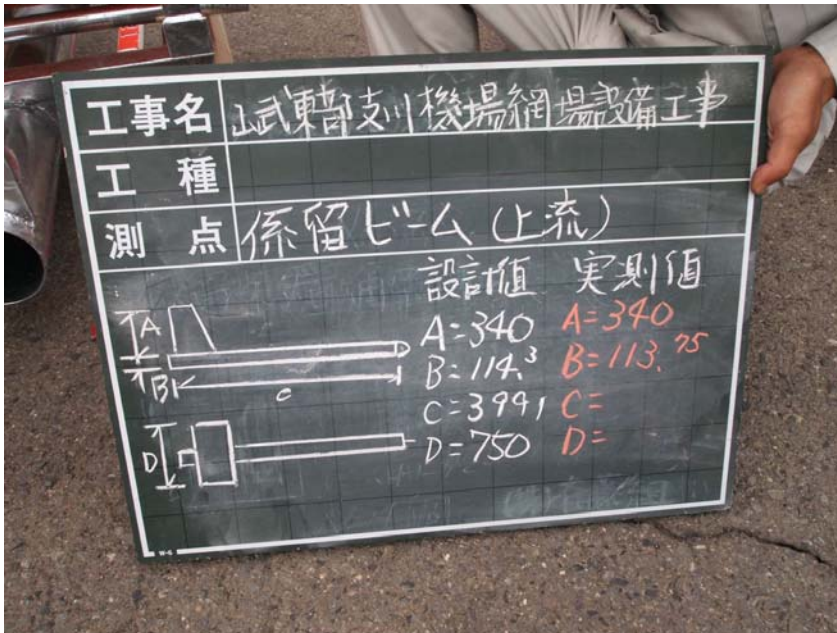 工事名 山武東部支川機場網場設備工事
工種
測点 係留ビーム(上流)
設計値 実測値
A A=340 A=340
B B=114.3 B=113.75
C C=3991 C=
D D=750 D=
W-6